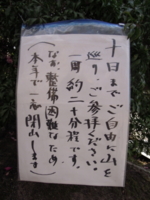 十日までご自由に山を
巡り、ご参拝ください。
一周約二十分程です。
なお、整備困難なため
(本年で一応閉山します)